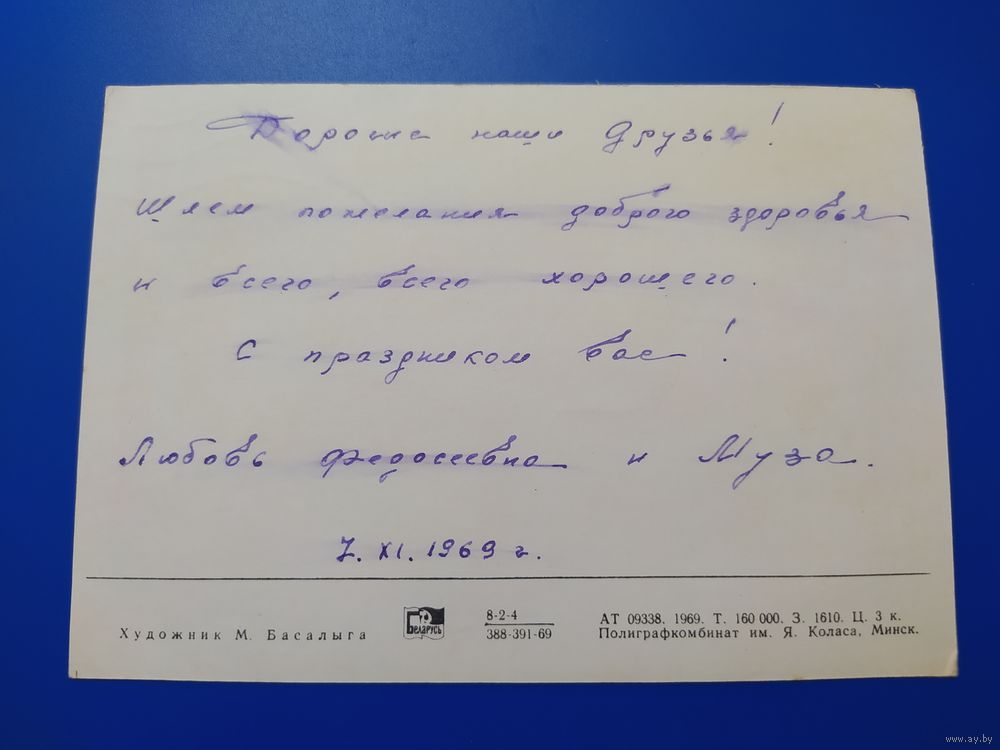 Дорогие наши Друзья!
Шлем пожелания доброго здоровья
и всего, всего хорошего.
С праздником вас!
Любовь Федосеевна и Муза.
7. XI. 1969 г.
Художник М. Басалыга
Беларусь
8-2-4
388-391-69
АТ 09338. 1969. Т. 160 000. З. 1610. Ц. 3 к.
Полиграфкомбинат им. Я. Коласа, Минск.
www.ay.by